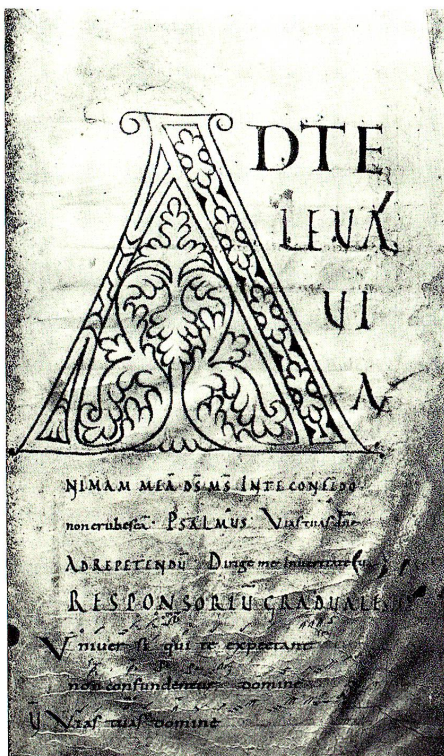 AD TE
LEVA
VI
A
NIMAM MEĀ D̄S M̄S INTE CONFIDO
non erubescā PSALMUS Vias tuas dn̄e
AD REPETENDŪ Dirige me in veritate
RESPONSORIU GRADUALE
Univer si qui te expectant
non confundentur domine
V̄ Vias tuas domine